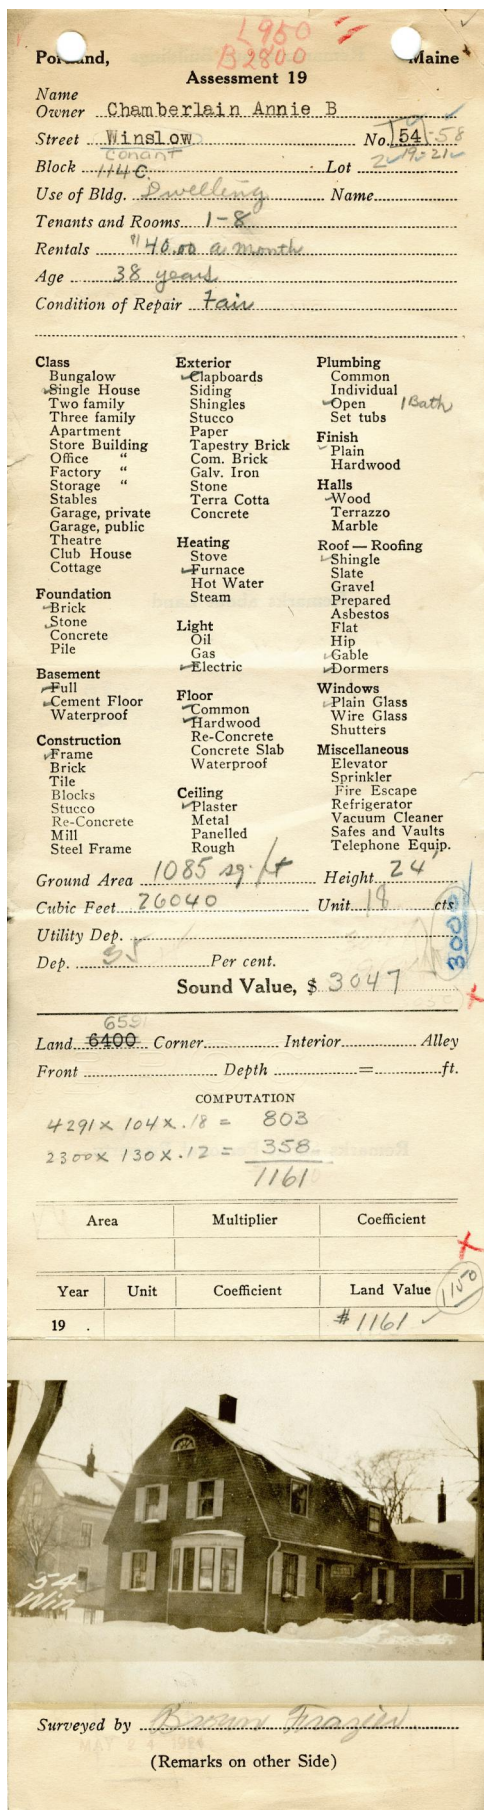 L950
B2800
Portland, Maine
Assessment 19
Name
Owner Chamberlain Annie B
Street Winslow No. 54-58
Conant
Block 114C Lot 2-19-21
Use of Bldg. Dwelling Name
Tenants and Rooms 1-8
Rentals "40.00 a month
Age 38 years
Condition of Repair Fair
Class
Bungalow
Single House
Two family
Three family
Apartment
Store Building
Office "
Factory "
Storage "
Stables
Garage, private
Garage, public
Theatre
Club House
Cottage
Foundation
Brick
Stone
Concrete
Pile
Basement
Full
Cement Floor
Waterproof
Construction
Frame
Brick
Tile
Blocks
Stucco
Re-Concrete
Mill
Steel Frame
Exterior
Clapboards
Siding
Shingles
Stucco
Paper
Tapestry Brick
Com. Brick
Galv. Iron
Stone
Terra Cotta
Concrete
Heating
Stove
Furnace
Hot Water
Steam
Light
Oil
Gas
Electric
Floor
Common
Hardwood
Re-Concrete
Concrete Slab
Waterproof
Ceiling
Plaster
Metal
Panelled
Rough
Plumbing
Common
Individual
Open 1 Bath
Set tubs
Finish
Plain
Hardwood
Halls
Wood
Terrazzo
Marble
Roof — Roofing
Shingle
Slate
Gravel
Prepared
Asbestos
Flat
Hip
Gable
Dormers
Windows
Plain Glass
Wire Glass
Shutters
Miscellaneous
Elevator
Sprinkler
Fire Escape
Refrigerator
Vacuum Cleaner
Safes and Vaults
Telephone Equip.
Ground Area 1085 sq. ft Height 24'
Cubic Feet 26040 Unit 18 cts
3000
Utility Dep.
Dep. 35 Per cent.
Sound Value, $ 3047
6591
Land 6400 Corner Interior Alley
Front Depth = ft.
COMPUTATION
4291 x 104 x .18 = 803
2300 x 130 x .12 = 358
1161
Area Multiplier Coefficient
Year Unit Coefficient Land Value
1150
19 . # 1161
54
Win
Surveyed by Brown Frazier
(Remarks on other Side)